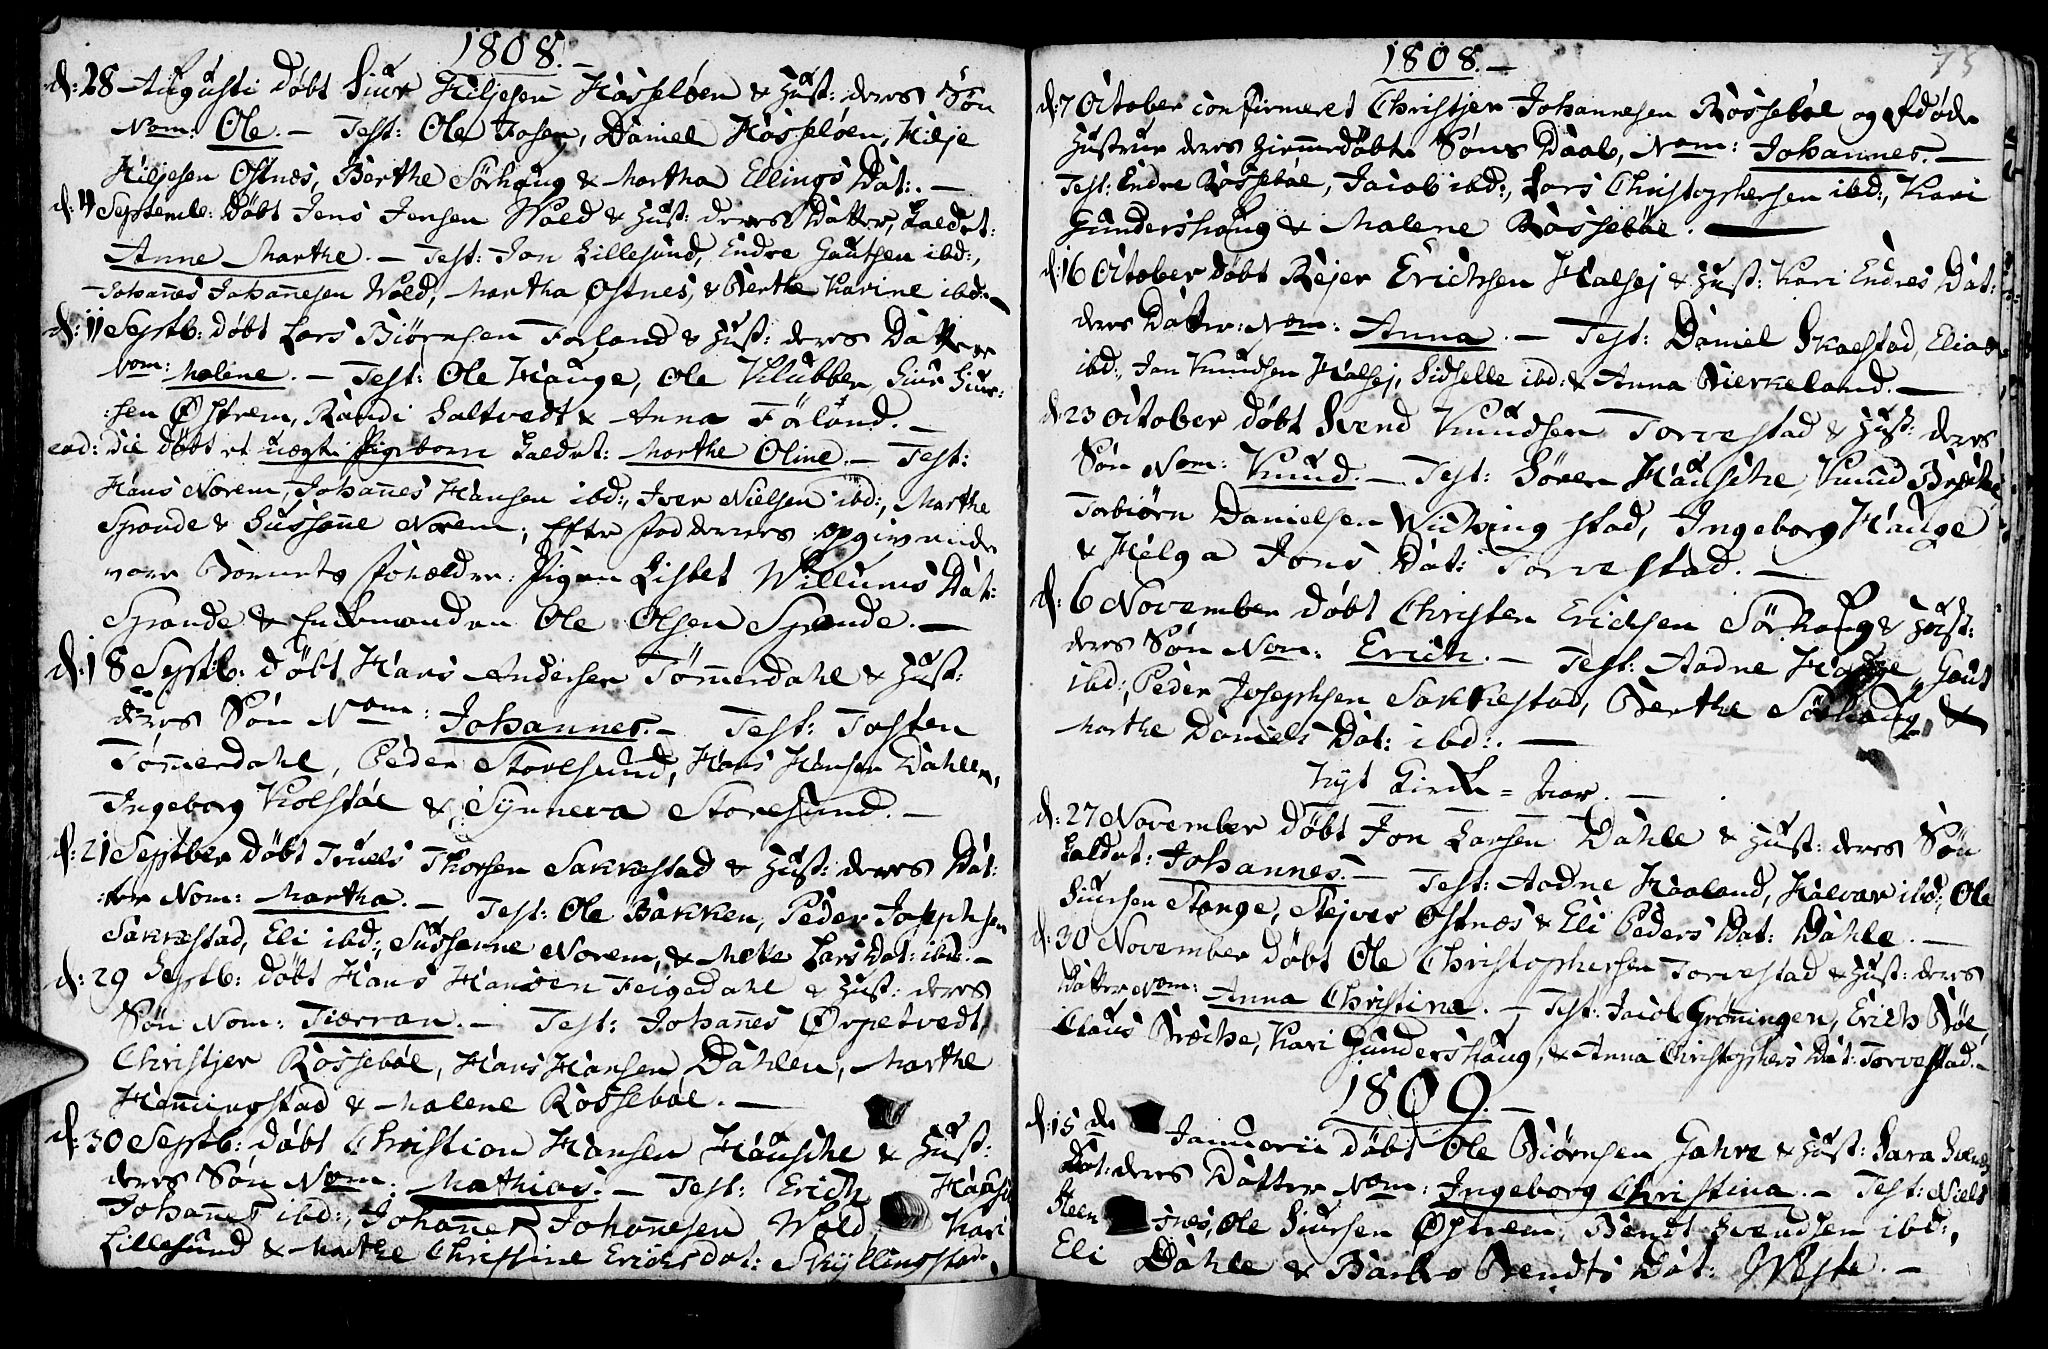 1808.-
d: 28 Augusti döbt Siur Hiljesen Hasselöen & Hust: deres Sön
Nom: Ole.- Test: Ole Fosen, Daniel Hasselöen, Hilje
Hiljesen Østnes, Berthe Sörhaug & Martha Ellings Dat:.-
d: 4 Septemb: döbt Jens Jensen Wold & Hust: deres Datter, kaldet:
Anne Marthe.- Test: Jon Lillesund, Endre Gautsen ibd:,
Johan̄es Johan̄esen Wold, Martha Østnes, & Berthe Karine ibd:.-
d: 11 Septb: döbt Lars Biörnsen Forland & Hust: deres Datter
Nom: Malene.- Test: Ole Hauge, Ole Klubben, Siur Siur:
:sen Østrem, Randi Saltvedt & Anna Förland.-
eod: die döbt et uægte Pigebarn kaldet: Marthe Oline.- Test:
Hans Norem, Johan̄es Hansen ibd:, Iver Nielsen ibd:, Marthe
Spande & Sussan̄e Norem; Efter fadderenes opgivende
vare Barnets Forældre: Pigen Lisbet Willums Dat:
Spande & Enkemanden Ole Olsen Spande.-
d: 18 Septb: döbt Hans Andersen Töm̄erdahl & Hust:
deres Sön Nom: Johannes.- Test: Tosten
Töm̄erdahl, Peder Storesund, Hans Hansen Dahlen,
Ingeborg Kolstöe & Synneva Storesund.-
d: 21 Septber döbt Truels Thorsen Sakkestad & Hust: deres Dat:
:ter Nom: Martha.- Test: Ole Bakken, Peder Josephsen
Sakkestad, Eli ibd:, Sussanne Norem, & Mette Lars Dat: ibd:.-
d: 29 Septb: döbt Hans Hansen Feigedahl & Hust: deres
Sön Nom: Tieran.- Test: Johan̄es Ørpetvedt,
Christjer Rossebøe, Hans Hansen Dahlen, Marthe
Hem̄ingstad & Malene Rossebøe.-
d: 30 Septb: döbt Christian Hansen Hausche & Hust:
deres Sön Nom: Mathias.- Test: Erich Hausche
Johan̄es ibd:, Johan̄es Johan̄esen Wold, Kari
Lillesund & Marthe Christine Erichsdat: Skyllingstad.
75
1808.-
d: 7 October confirmeret Christjer Johannesen Rossebøe og afdøde
Hustrue deres hiemmedöbte Söns Daab, Nom: Johannes.-
Test: Endre Rossebøe, Jacob ibd:, Lars Christophersen ibd:, Kari
Gundershaug & Malene Rossebøe.-
d: 16 October döbt Rejer Erichsen Halsej & Hust: Kari Endres Dat:
deres Datter: Nom: Anna.- Test: Daniel Skaestad, Elias
ibd:, Jan Knudsen Halsej, Sidselle ibd: & Anna Bierkeland.-
d: 23 October döbt Svend Knudsen Torvestad & Hust: deres
Sön Nom: Knud.- Test: Sören Hausche, Knud Bræche,
Torbiörn Danielsen Wichingstad, Ingeborg Hauge
& Helga Jons Dat: Torvestad.-
d: 6 November döbt Christen Erichsen Sörhaug & Hust:
deres Sön Nom: Erich.- Test: Aadne Hauge, Gaut
ibd:, Peder Josephsen Sakkestad, Berthe Sörhaug, &
Marthe Daniels Dat: ibd:.-
Nyt Kirke=Aar.-
d: 27 November döbt Jon Larsen Dahle & Hust: deres Sön
kaldet: Johannes.- Test: Aadne Haaland, Halvar ibd:, Ole
Siursen Stange, Stejver Østnæs & Eli Peders Dat: Dahle.-
d: 30 November döbt Ole Christophersen Torvestad & Hust: deres
Datter Nom: Anna Christina.- Test: Jacob Gröningen, Erich Bøe,
Claus Bræche, Kari Gundershaug, & Anna Christophers Dat: Torvestad.-
1809.-
d: 15 de Januarii döbt Ole Biörnsen Gahre & Hust: Sara Svends
Dat: deres Datter Nom: Ingeborg Christina.- Test: Niels
Steen snes, Ole Siursen Østrem, Bendt Svendsen ibd:,
Eli Dahle & Barbro Bendts Dat: Weste.-